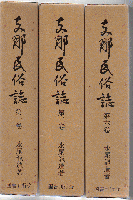 支那民俗誌
第一卷
永尾龍造著
支那民俗誌
第二卷
永尾龍造著
支那民俗誌
第六卷
永尾龍造著